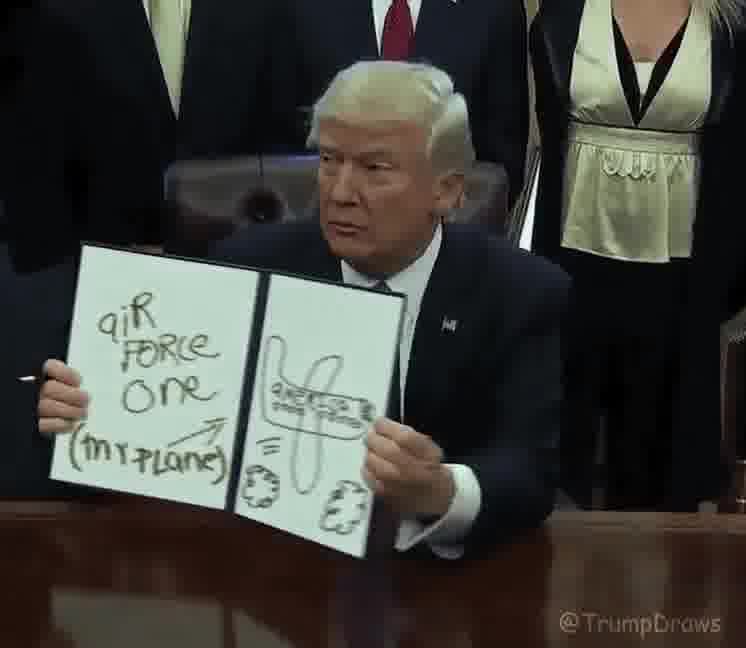 aiR
FORCe
One
(mY PLane)
AMERICA
@TrumpDraws